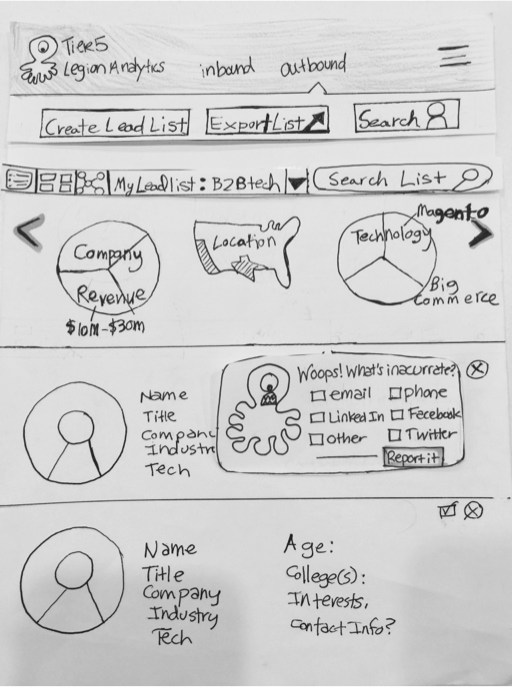 Tier5
Legion Analytics inbound outbound
Create Lead List Export List Search
My Leadlist: B2Btech Search List
Company
Revenue
$10M-$30M
Location
Technology
Magento
Big
Commerce
Name
Title
Company
Industr
Tech
Woops! What's inacurrate?
email phone
LinkedIn Facebook
other Twitter
Report it
Name
Title
Company
Industry
Tech
Age:
College(s):
Interests,
Contact Info?